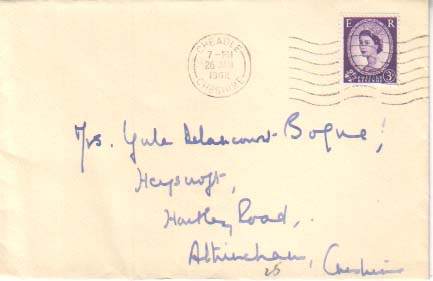 CHEADLE
7-PM
CHESHIRE
E R
3D
Mrs. Yule Delancourt-Bogue!
Heyscroft,
Hartley Road,
Altrincham, Cheshire